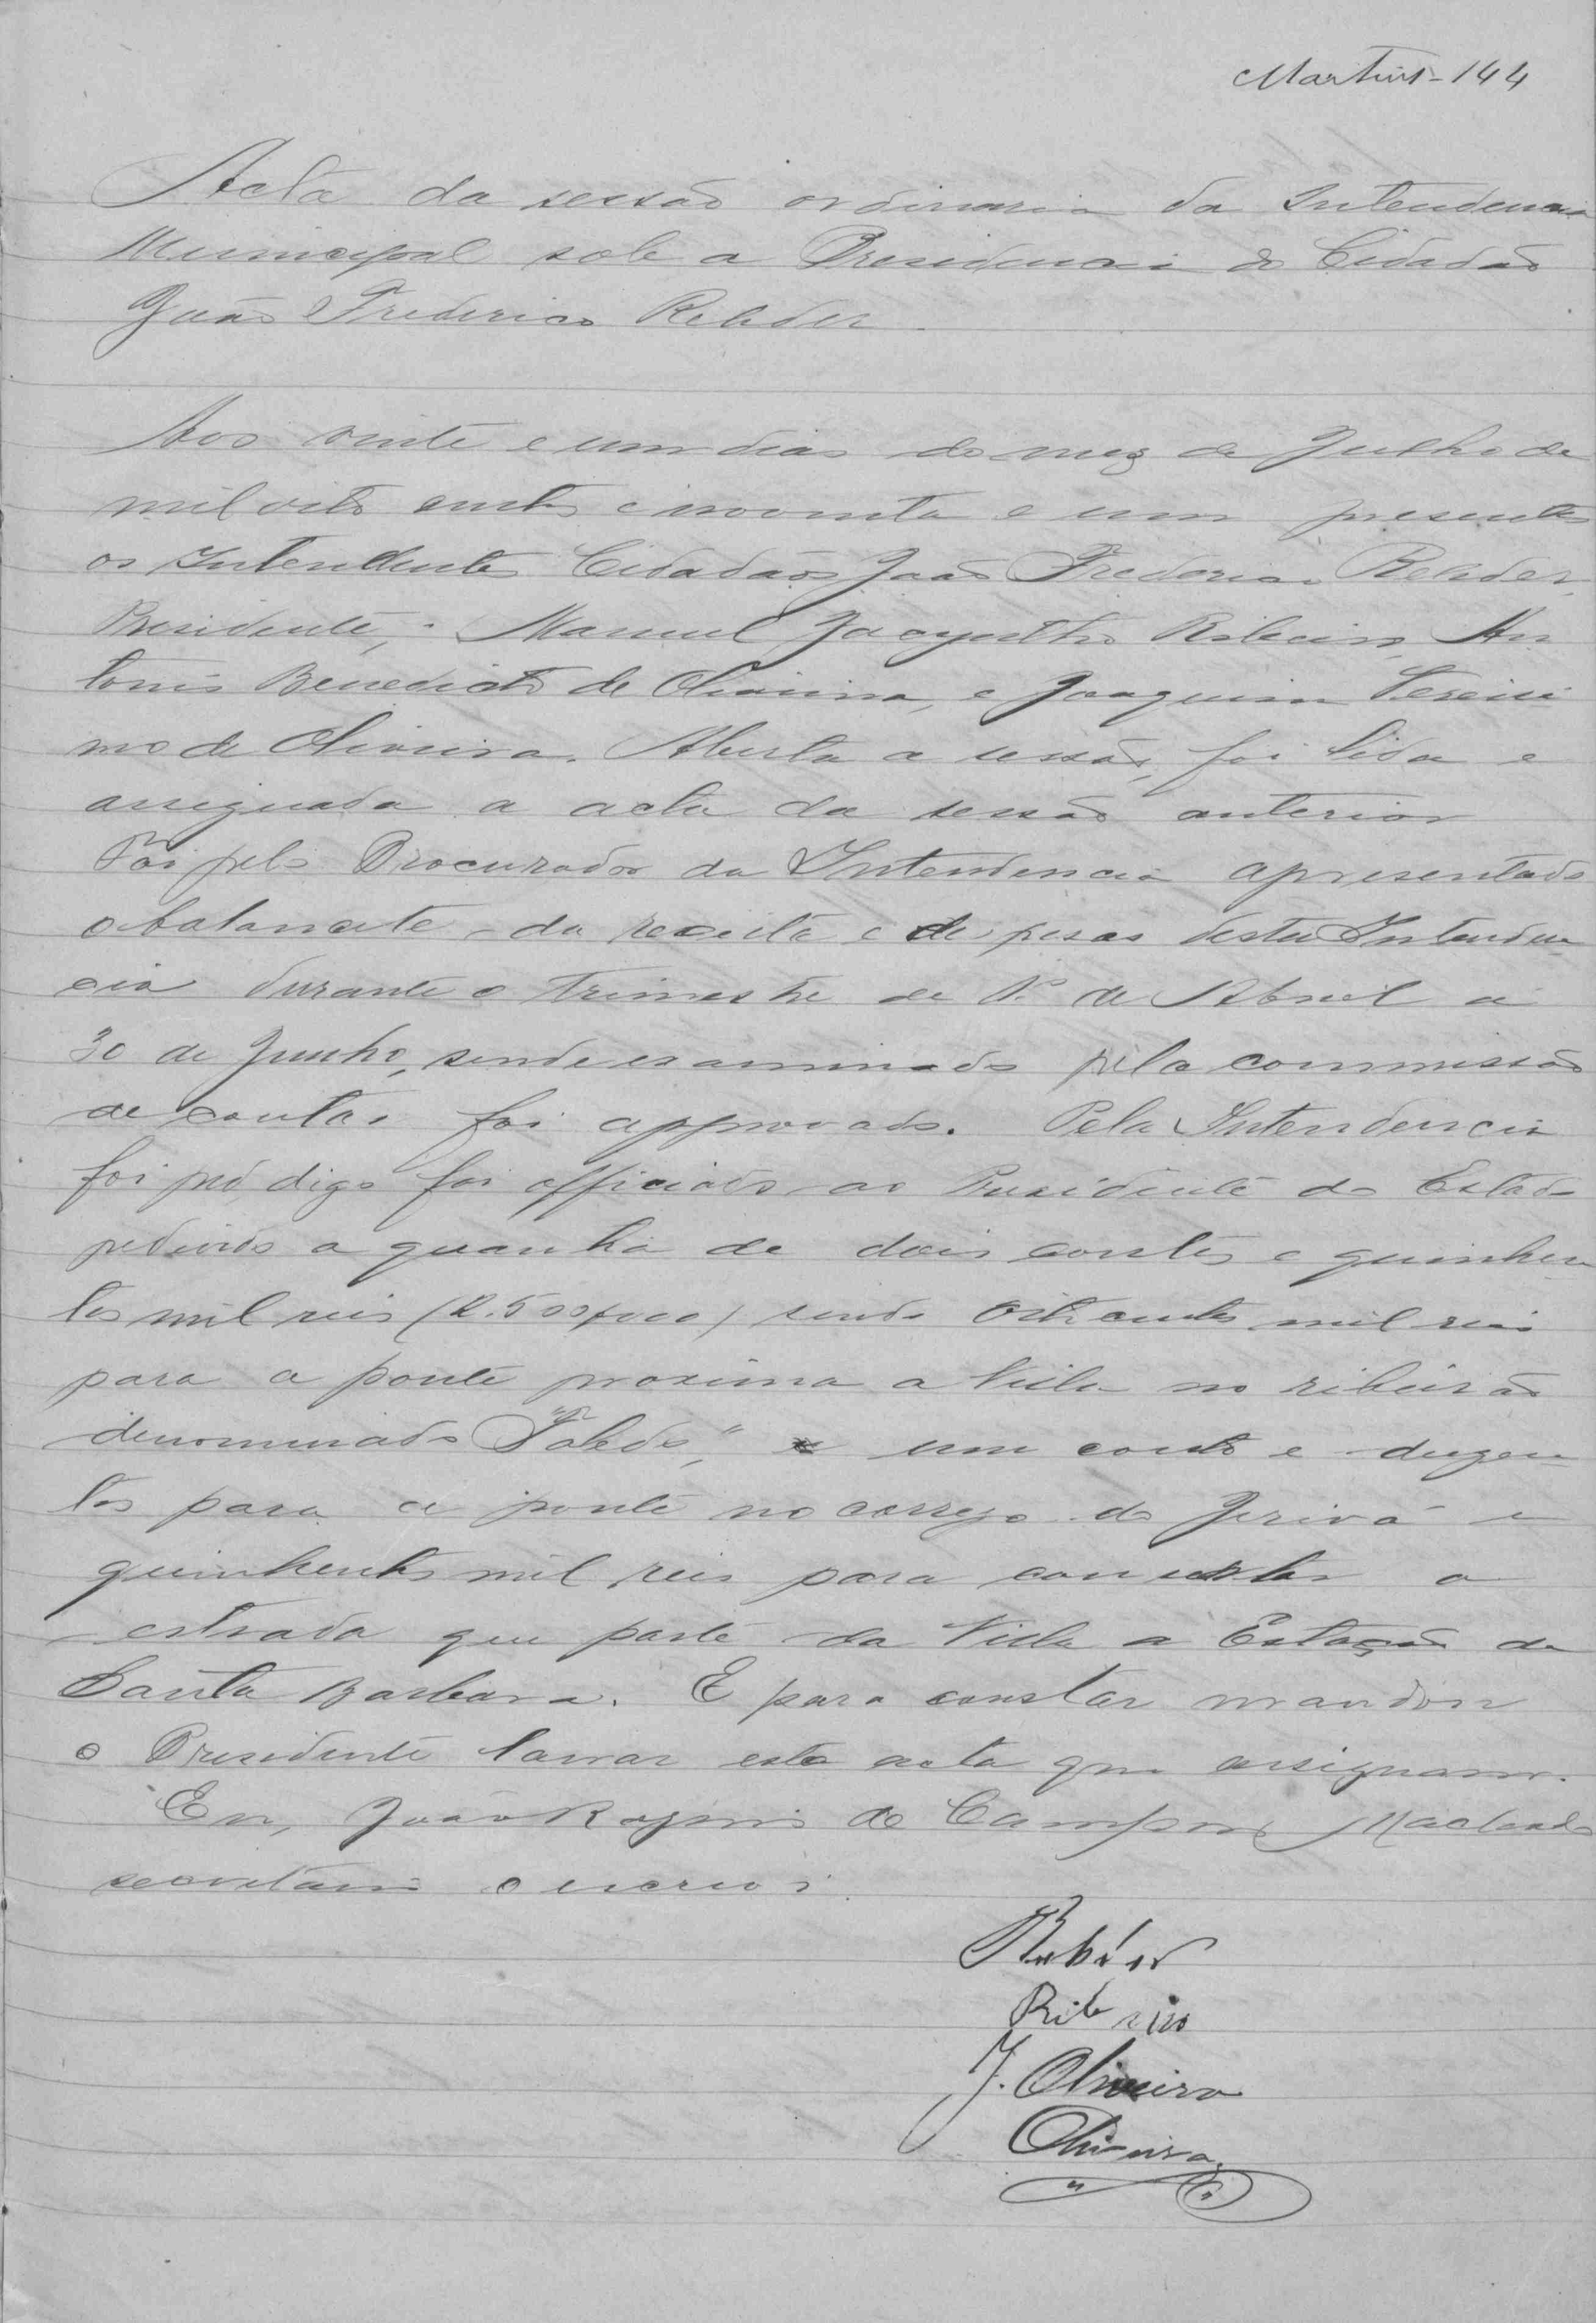 Martins - 144
Acta da sessão ordinaria da Intendencia
Municipal sob a Presidencia do Cidadão
João Frederico Rehder.
Aos vinte e um dias do mez de Julho de
mil oito centos e noventa e um presentes
os Intendentes Cidadãos João Frederico Rehder,
Presidente, Manuel Jacyntho Ribeiro, An
tonio Benedicto de Oliveira, e Joaquim Verissi
mo de Oliveira. Aberta a sessão, foi lida e
assignada a acta da sessão anterior
Foi pelo Procurador da Intendencia apresentado
o balancete da receita e despesas desta Intenden
cia durante o trimestre de 1º de Abril a
30 de Junho, sendo examinado pela commissão
de contas foi approvado. Pela Intendencia
foi digo foi officiado ao Presidente do Estado
pedindo a quantia de dois contos e quinhen
tos mil reis (2.500$000) sendo oito centos mil reis
para a ponte proxima a Villa no ribeirão
denominado "Toledo," um conto e duzen
tos para a ponte no corrego do Jerivá e
quinhentos mil reis para a
estrada que parte da Villa a Estação de
Santa Barbara. E para constar mandou
o Presidente lavrar esta acta que assignam.
Eu, João de Campos Machado
secretario o escrevi.
Rehder
Ribeiro
J. Oliveira
Oliveira